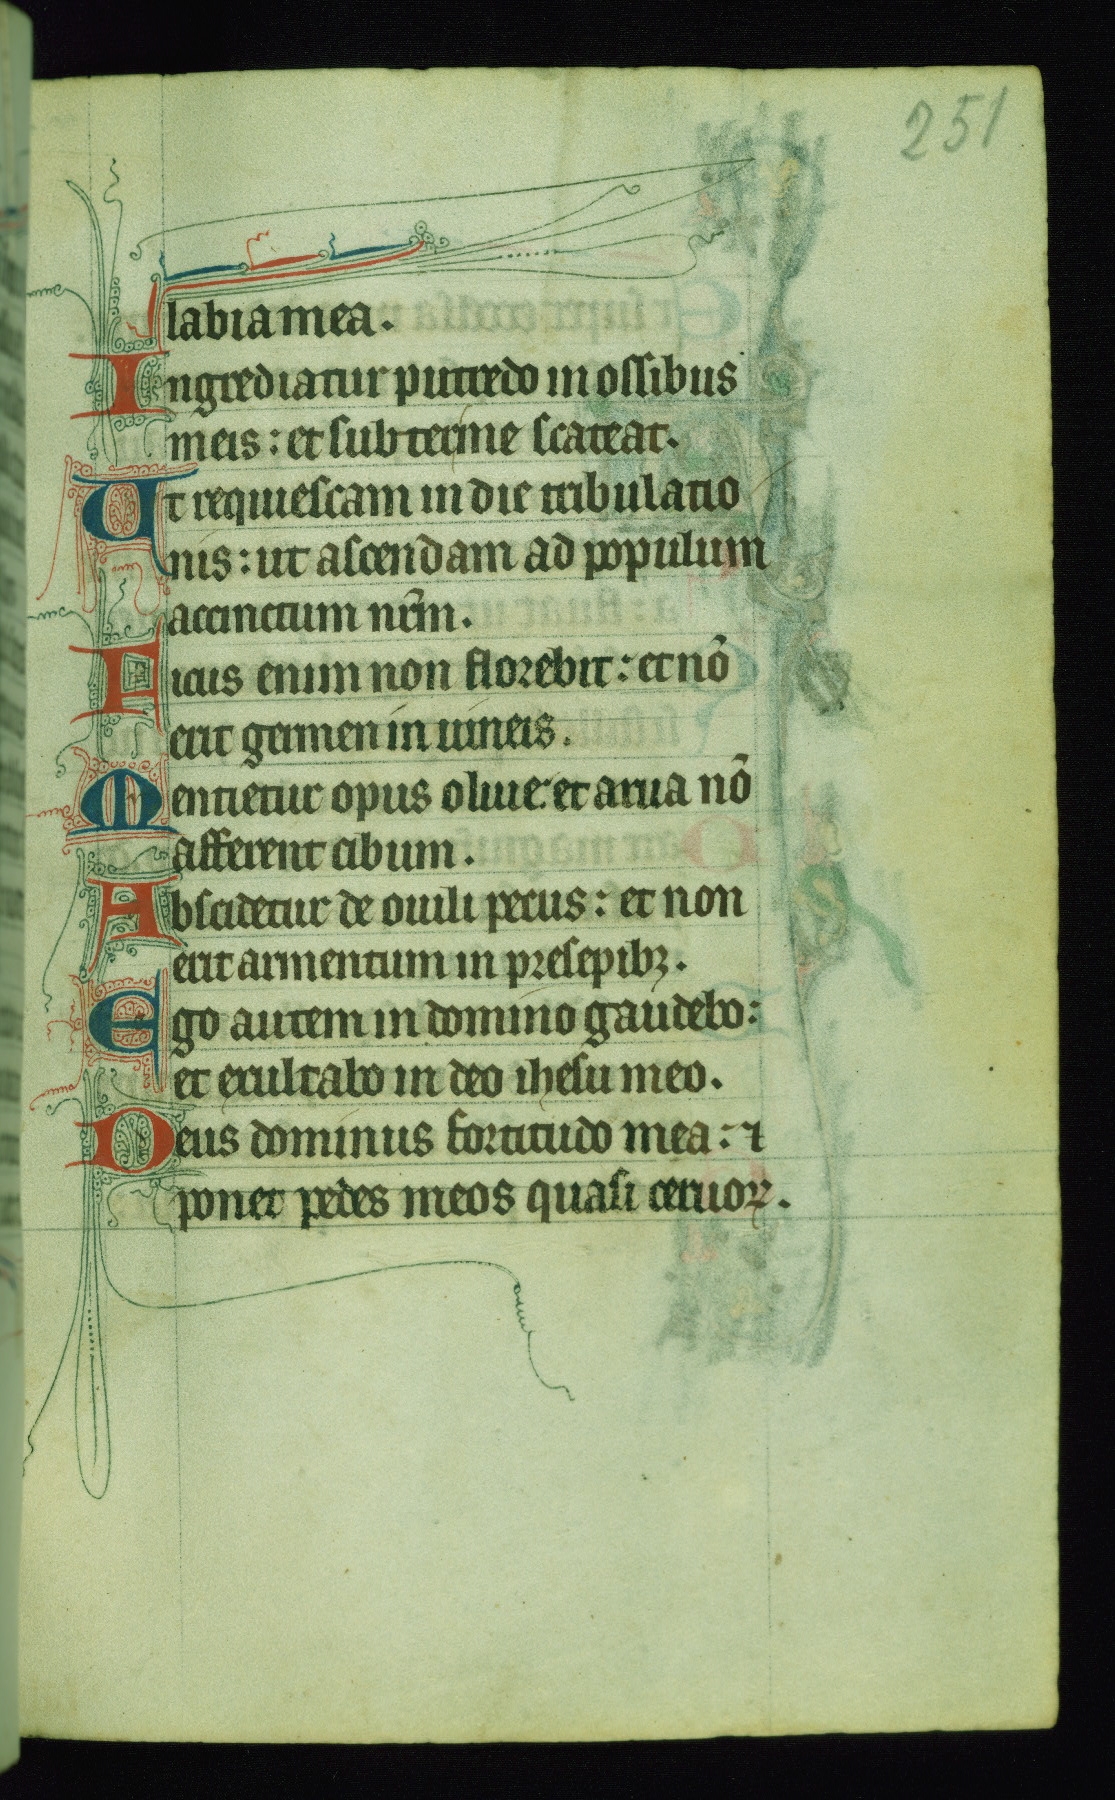 251
labia mea.
Ingrediatur putredo in ossibus
meis : et subter me scateat.
Ut requiescam in die tribulatio
nis : ut ascendam ad populum
accinctum nr̄m.
Ficus enim non florebit : et nō
erit germen in uineis.
Mentietur opus oliue : et arua nō
afferent cibum.
Abscidetur de ouili pecus : et non
erit armentum in presepibꝫ.
Ego autem in domino gaudebo :
et exultabo in deo ihesu meo.
Deus dominus fortitudo mea : ⁊
ponet pedes meos quasi ceruoꝝ.